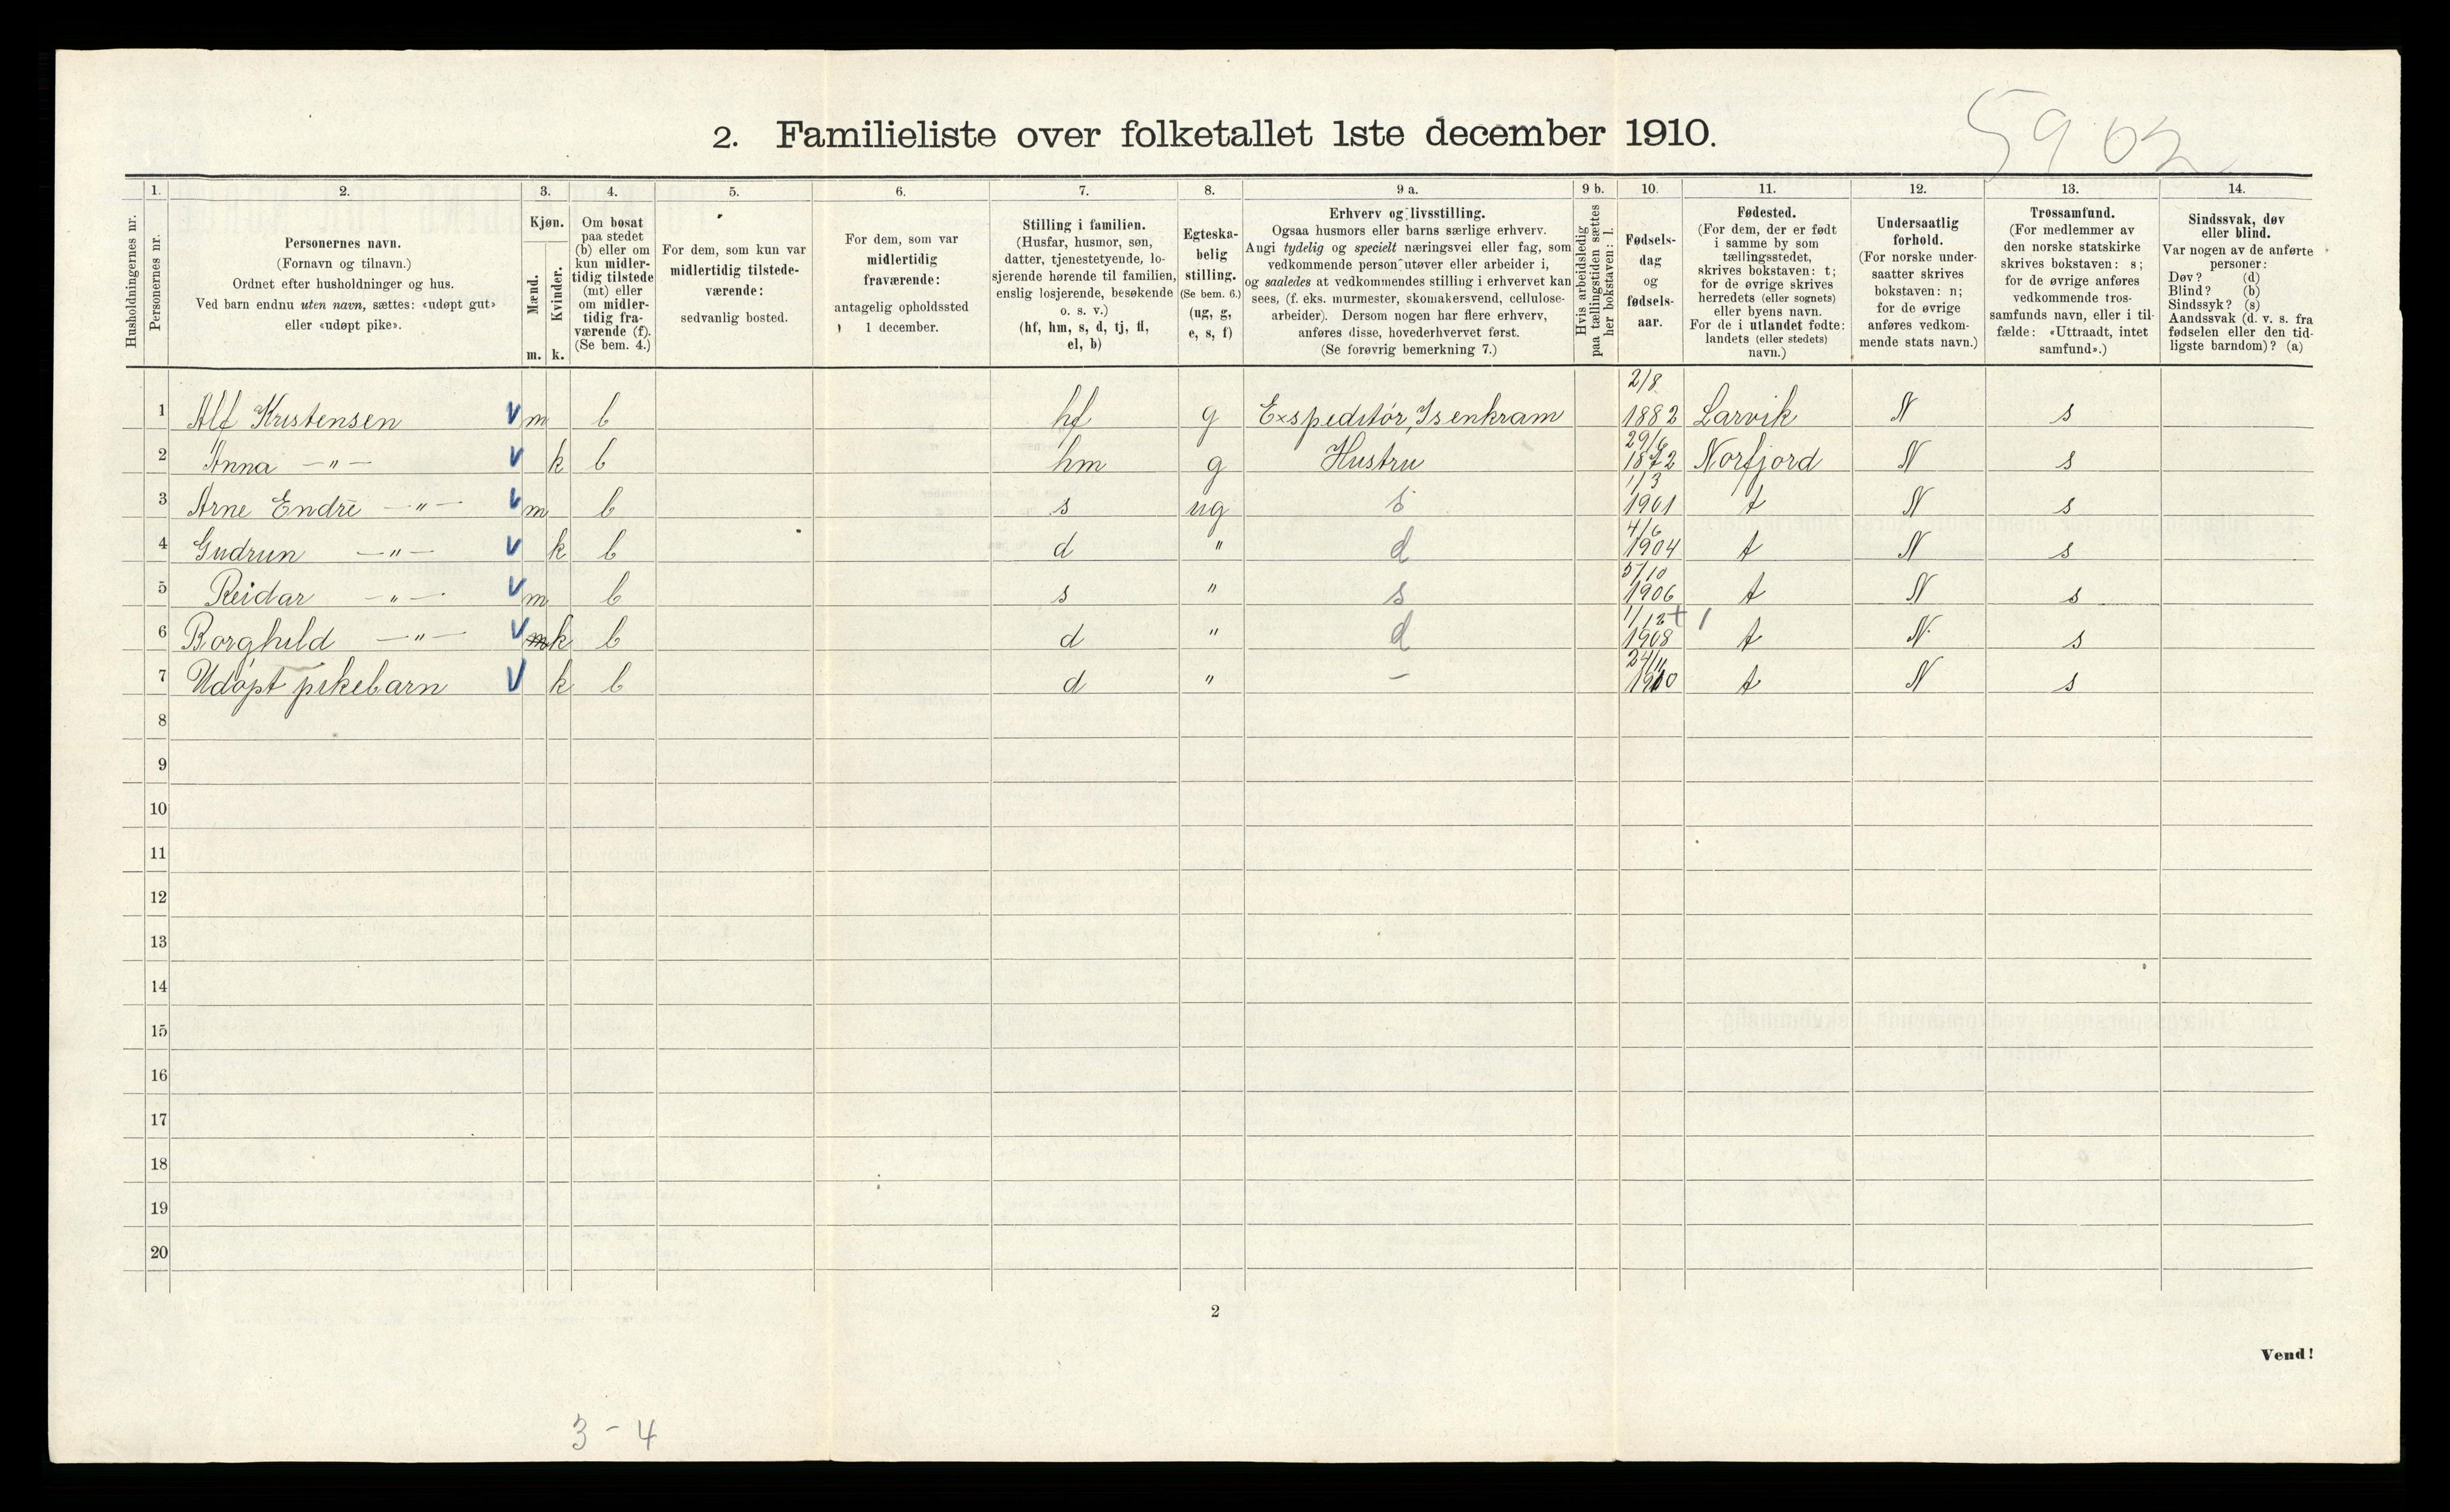 5902
2. Familieliste over folketallet 1ste december 1910.
1. 2. 3. 4. 5. 6. 7. 8. 9 a. 9 b. 10. 11. 12. 13. 14.
Husholdningernes nr.
Personernes nr.
Personernes navn.
(Fornavn og tilnavn.)
Ordnet efter husholdninger og hus.
Ved barn endnu uten navn, sættes: «udøpt gut»
eller «udøpt pike».
Kjøn.
Mænd.
m.
Kvinder.
k.
Om bosat
paa stedet
(b) eller om
kun midler-
tidig tilstede
(mt) eller
om midler-
tidig fra-
værende (f).
(Se bem. 4.)
For dem, som kun var
midlertidig tilstede-
værende:
sedvanlig bosted.
For dem, som var
midlertidig
fraværende:
antagelig opholdssted
1 december.
Stilling i familien.
(Husfar, husmor, søn,
datter, tjenestetyende, lo-
sjerende hørende til familien,
enslig losjerende, besøkende
o. s. v.)
(hf, hm, s, d, tj, fl,
el, b)
Egteska-
belig
stilling.
(Se bem. 6.)
(ug, g,
e, s, f)
Erhverv og livsstilling.
Ogsaa husmors eller barns særlige erhverv.
Angi tydelig og specielt næringsvei eller fag, som
vedkommende person utøver eller arbeider i,
og saaledes at vedkommendes stilling i erhvervet kan
sees, (f. eks. murmester, skomakersvend, cellulose-
arbeider). Dersom nogen har flere erhverv,
anføres disse, hovederhvervet først.
(Se forøvrig bemerkning 7.)
Hvis arbeidsledig
paa tællingstiden sættes
her bokstaven: l.
Fødsels-
dag
og
fødsels-
aar.
Fødested.
(For dem, der er født
i samme by som
tællingsstedet,
skrives bokstaven: t;
for de øvrige skrives
herredets (eller sognets)
eller byens navn.
For de i utlandet fødte:
landets (eller stedets)
navn.)
Undersaatlig
forhold.
(For norske under-
saatter skrives
bokstaven: n;
for de øvrige
anføres vedkom-
mende stats navn.)
Trossamfund.
(For medlemmer av
den norske statskirke
skrives bokstaven: s;
for de øvrige anføres
vedkommende tros-
samfunds navn, eller i til-
fælde: «Uttraadt, intet
samfund».)
Sindssvak, døv
eller blind.
Var nogen av de anførte
personer:
Døv? (d)
Blind? (b)
Sindssyk? (s)
Aandssvak (d. v. s. fra
fødselen eller den tid-
ligste barndom)? (a)
1 Alf Kristensen V m b hf g Expeditør, Isenkram 2/8 1882 Larvik N s
2 Anna —"— V k b hm g Hustru 29/6 1872 Norfjord N s
3 Arne Endre —"— V m b s ug s 1/3 1901 t N s
4 Gudrun —"— V k b d " d 4/6 1904 t N s
5 Reidar —"— V m b s " s 5/10 1906 t N s
6 Borghild —"— V m k b d " d 1/12 + 1 1908 t N s
7 Udøpt pikebarn V k b d " – 24/11 1910 t N s
8
9
10
11
12
13
14
15
16
17
18
19
20
2
Vend!
3 - 4